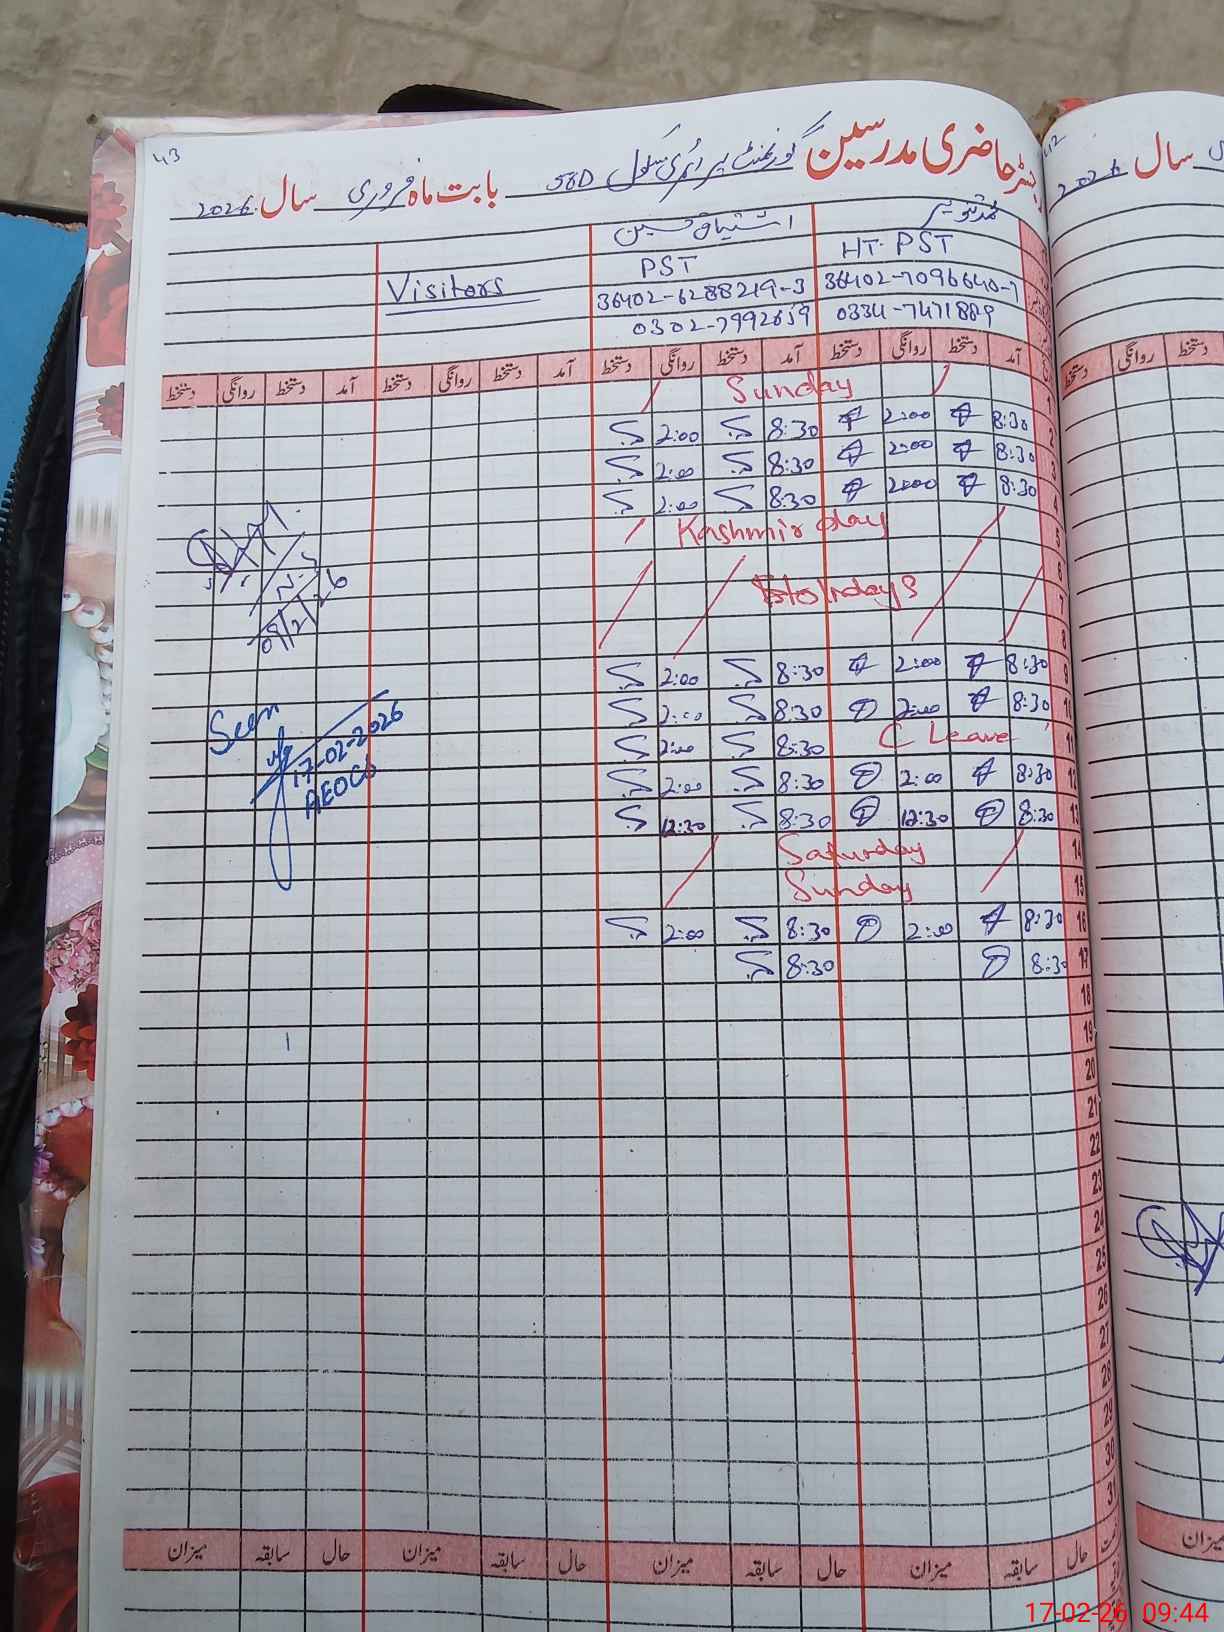 43
رجسٹر حاضری مدرسین گورنمنٹ پرائمری سکول 58D بابت ماہ فروری سال 2026
اشتیاق حسین
HT PST
PST
Visitors
36402-7096640-7
36402-6288219-3
0334-7471889
0302-7992659
آمد دستخط روانگی دستخط آمد دستخط روانگی دستخط آمد دستخط روانگی دستخط آمد دستخط روانگی دستخط
1 Sunday
2 8:30 2:00 8:30 2:00
3 8:30 2:00 8:30 2:00
4 8:30 2:00 8:30 2:00
5 Kashmir day
6
7 Holidays
8
9 8:30 2:00 8:30 2:00
10 8:30 2:00 8:30 2:00
11 C Leave 8:30 2:00
12 8:30 2:00 8:30 2:00
13 8:30 12:30 8:30 12:30
14 Saturday
15 Sunday
16 8:30 2:00 8:30 2:00
17 8:30 8:30
18
19
20
21
22
23
24
25
26
27
28
29
30
31
09/2/26
Seen
17-02-2026
AEOCS
حال سابقہ میزان حال سابقہ میزان حال سابقہ میزان حال سابقہ میزان
42
سال 2026
روانگی دستخط
میزان
17-02-26 09:44